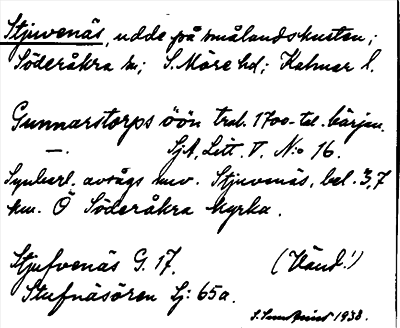 Stjuvenäs, udde på smålandskusten;
Söderåkra sn; S. Möre hd; Kalmar l.
Gunnarstorps öön trol. 1700-tal. början.
—. SjA. Litt. V. N:o 16.
Synbarl. avsågs nuv. Stjuvenäs, bel. 3,7
km. Ö Söderåkra kyrka.
Stjufvenäs G. 17. (Vänd!)
Stufnäsören Lj: 65a.
1938.